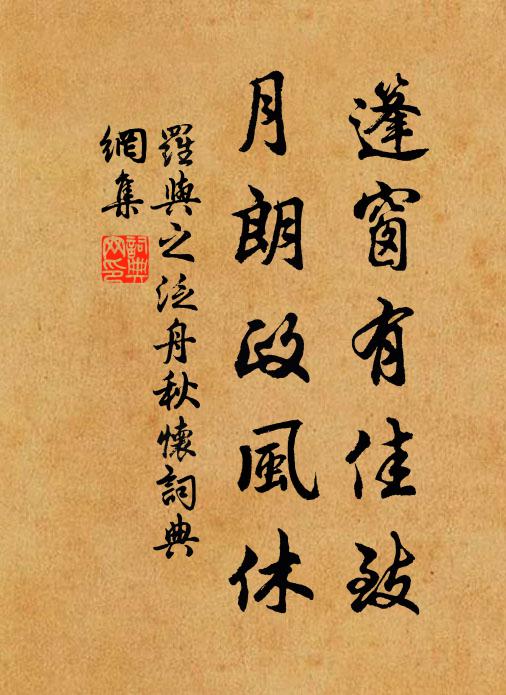 蓬窗有佳致
月朗政風休
羅與之泛舟秋懷詞典
網集
詞典網印